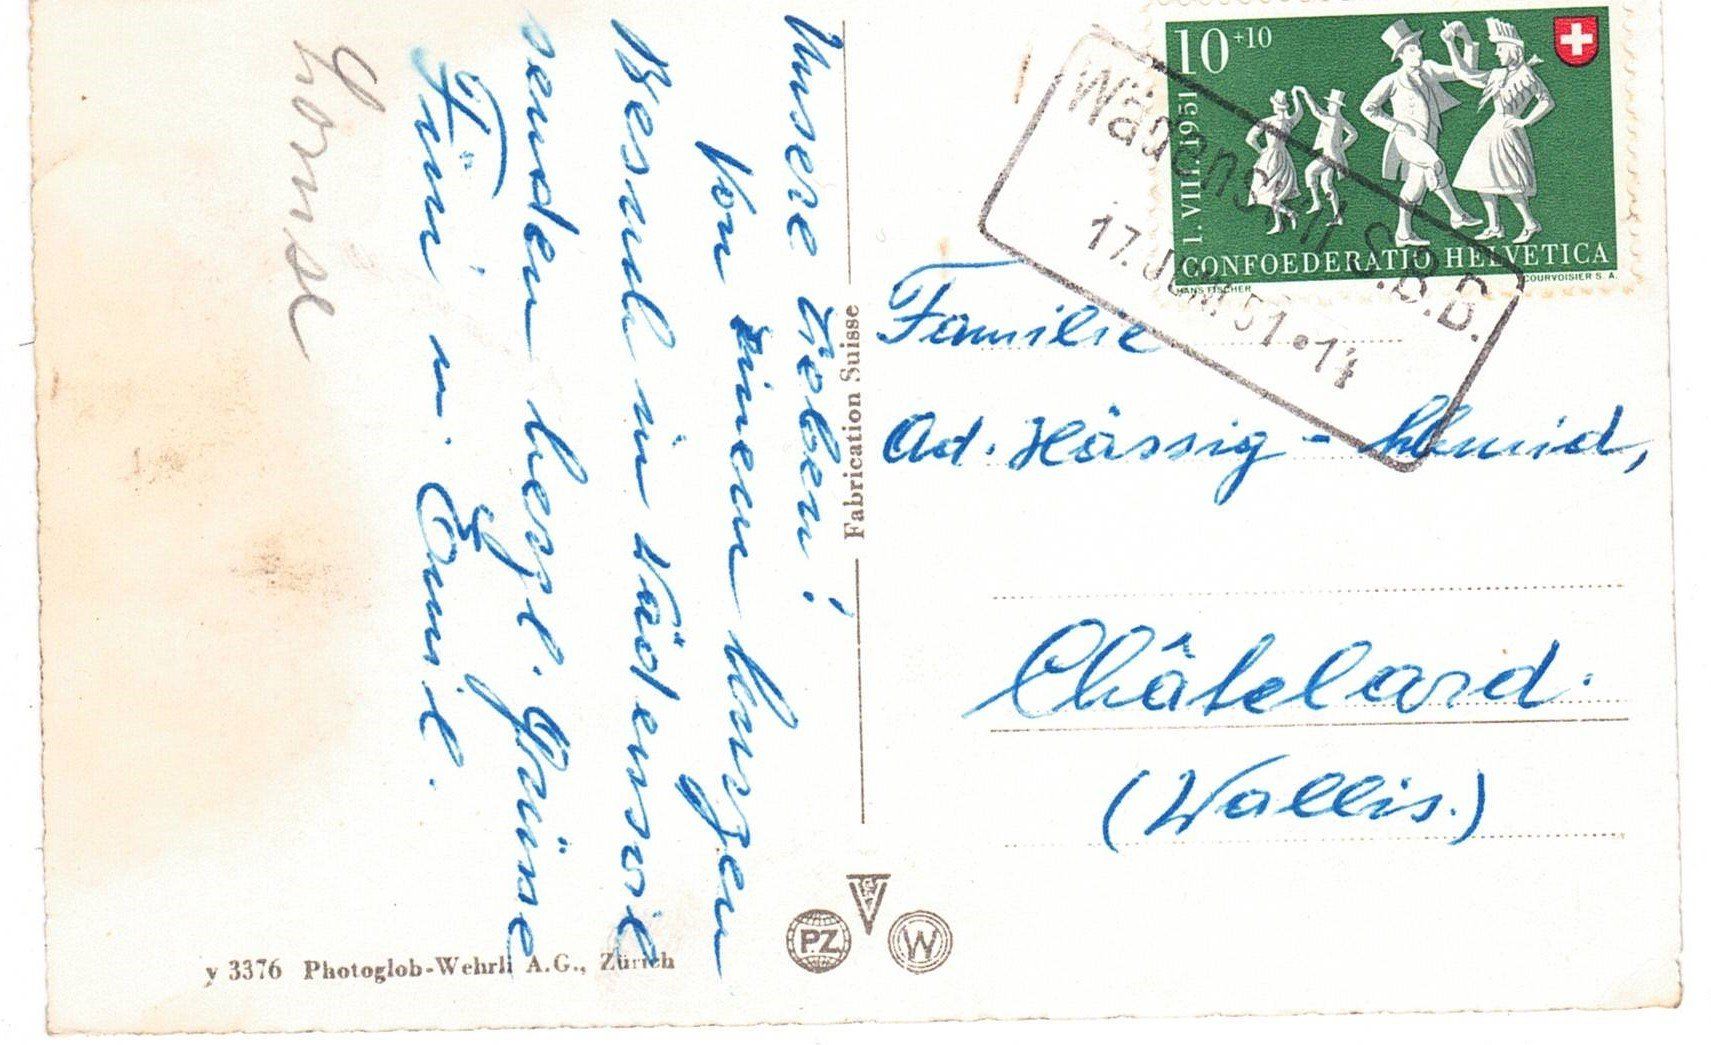 Unsere Lieben!
Von einem kurzen
Besuch in Wädenswil
senden herzl. Grüsse
Fini u. Emil.
Fabrication Suisse
10+10
1. VIII. 1951
CONFOEDERATIO HELVETICA
HANS FISCHER
COURVOISIER S.A.
Wädenswil S.B.B.
17. JUNI 51 • 14
Familie
Ad. Hässig - Schmid,
Châtelard.
(Wallis.)
PZ
W
y 3376 Photoglob-Wehrli A.G., Zürich